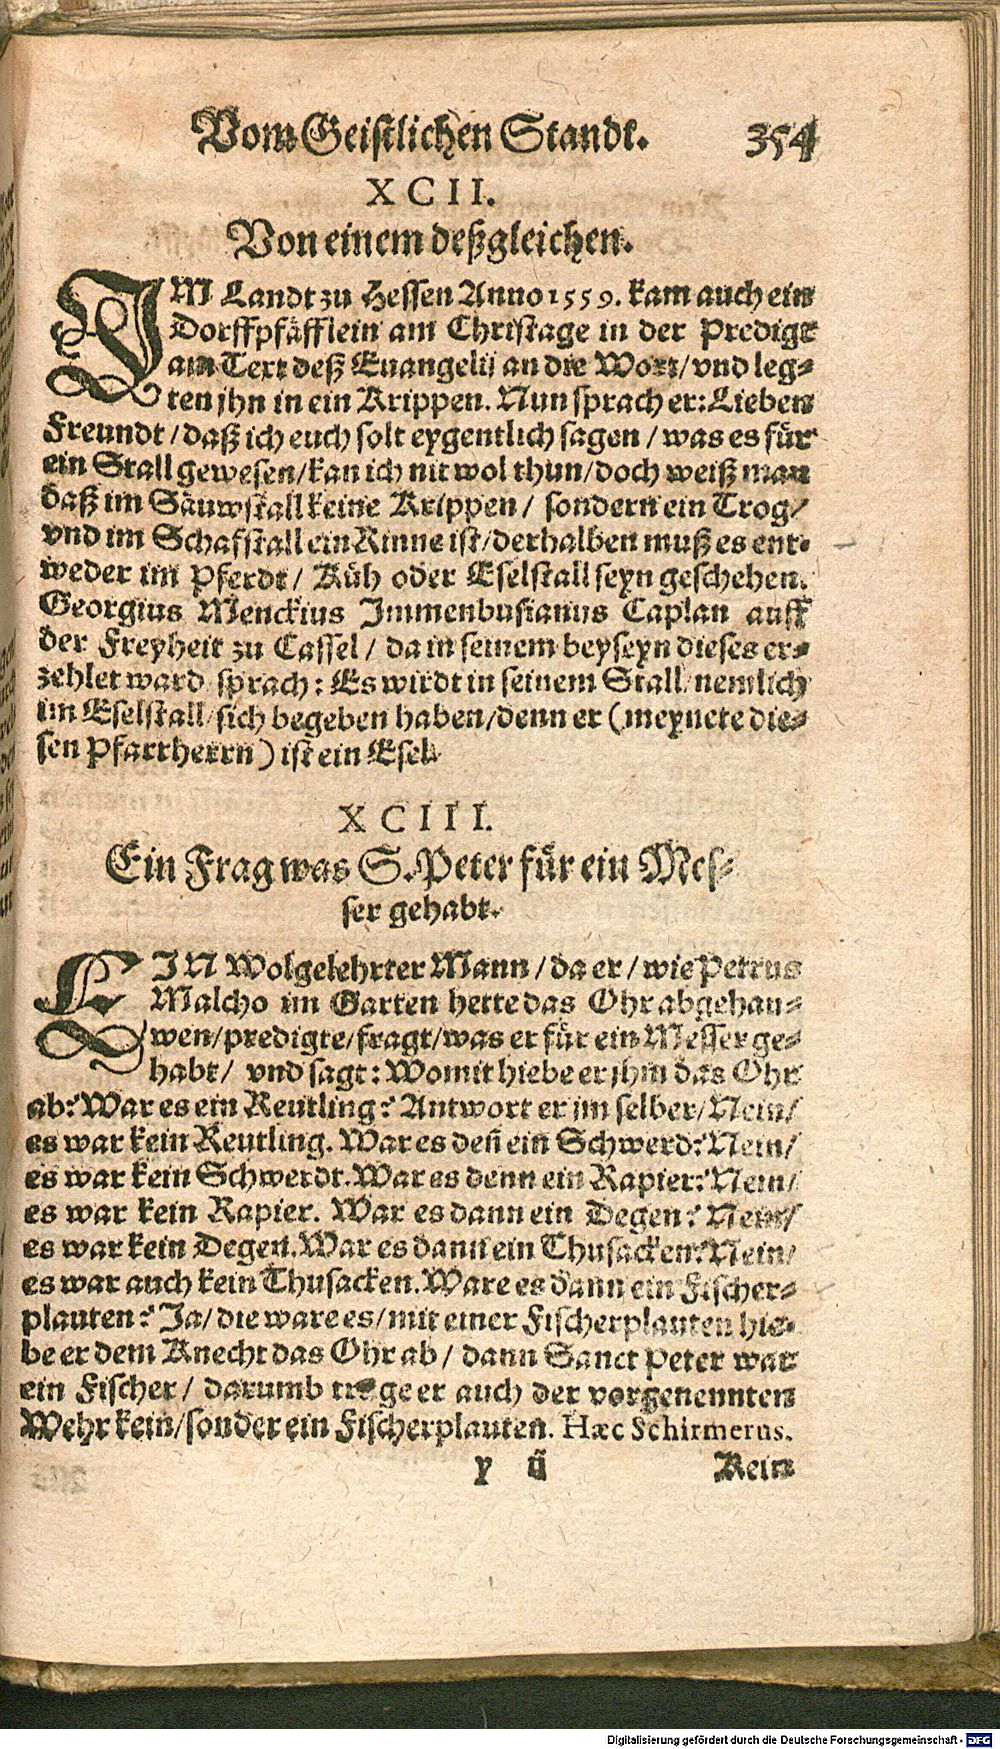 Vom Geistlichen Standt. 354
XCII.
Von einem deßgleichen.
IM Landt zu Hessen Anno 1559. kam auch ein
Dorffpfäfflein am Christage in der Predigt
am Text deß Euangelij an die Wort/vnd leg-
ten jhn in ein Krippen. Nun sprach er: Lieben
Freundt/daß ich euch solt eygentlich sagen/was es für
ein Stall gewesen/kan ich nit wol thun/doch weiß man
daß im Säuwstall keine Krippen/ sondern ein Trog/
vnd im Schafstall ein Rinne ist/derhalben muß es ent-
weder im Pferdt/ Küh oder Eselstall seyn geschehen.
Georgius Menckius Immenhusianus Caplan auff
der Freyheit zu Cassel/ da in seinem beyseyn dieses er-
zehlet ward sprach: Es wirdt in seinem Stall/nemlich
im Eselstall/sich begeben haben/denn er (meynete die-
sen Pfarrherrn) ist ein Esel.
XCIII.
Ein Frag was S. Peter für ein Mes-
ser gehabt.
EIN Wolgelehrter Mann/da er/wie Petrus
Malcho im Garten hette das Ohr abgehau-
wen/predigte/fragt/was er für ein Messer ge-
habt/ vnd sagt: Womit hiebe er jhm das Ohr
ab? War es ein Reutling? Antwort er im selber/Nein/
es war kein Reutling. War es deñ ein Schwerd? Nein/
es war kein Schwerdt. War es denn ein Rapier? Nein/
es war kein Rapier. War es dann ein Degen? Nein/
es war kein Degen. War es dann ein Thusacken? Nein/
es war auch kein Thusacken. Ware es dann ein Fischer-
plauten? Ja/die ware es/mit einer Fischerplauten hie-
be er dem Knecht das Ohr ab/ dann Sanct Peter war
ein Fischer/ darumb truge er auch der vorgenennten
Wehr kein/sonder ein Fischerplauten. Hæc Schirmerus.
y ij Kein
Digitalisierung gefördert durch die Deutsche Forschungsgemeinschaft - DFG